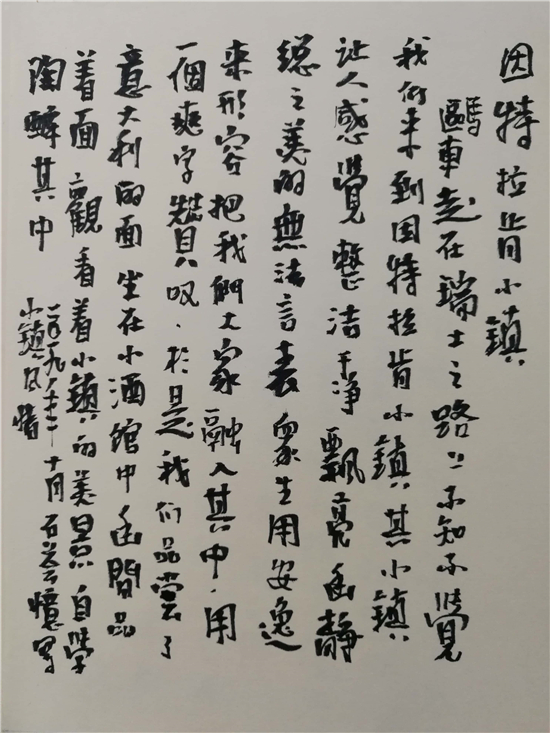 因特拉肯小鎮
驅車走在瑞士之路上不知不覺
我們來到因特拉肯小鎮其小鎮
让人感覺整洁干净飄亮幽静
總之美的無法言表眾生用安逸
來形容把我們大家融入其中.用
一個爽字贊叹.於是我们品尝了
意大利的面坐在小酒馆中悠閒品
着面 觀看着小鎮的美景自學
陶醉其中
二〇一九 十月
小鎮風情